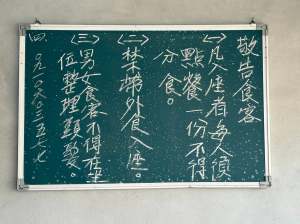 敬告食客
(一)凡入座者每人須
點餐一份不得
分食。
(二)禁帶外食入座。
(三)男女食客不得在座
位整理頭髮。
四